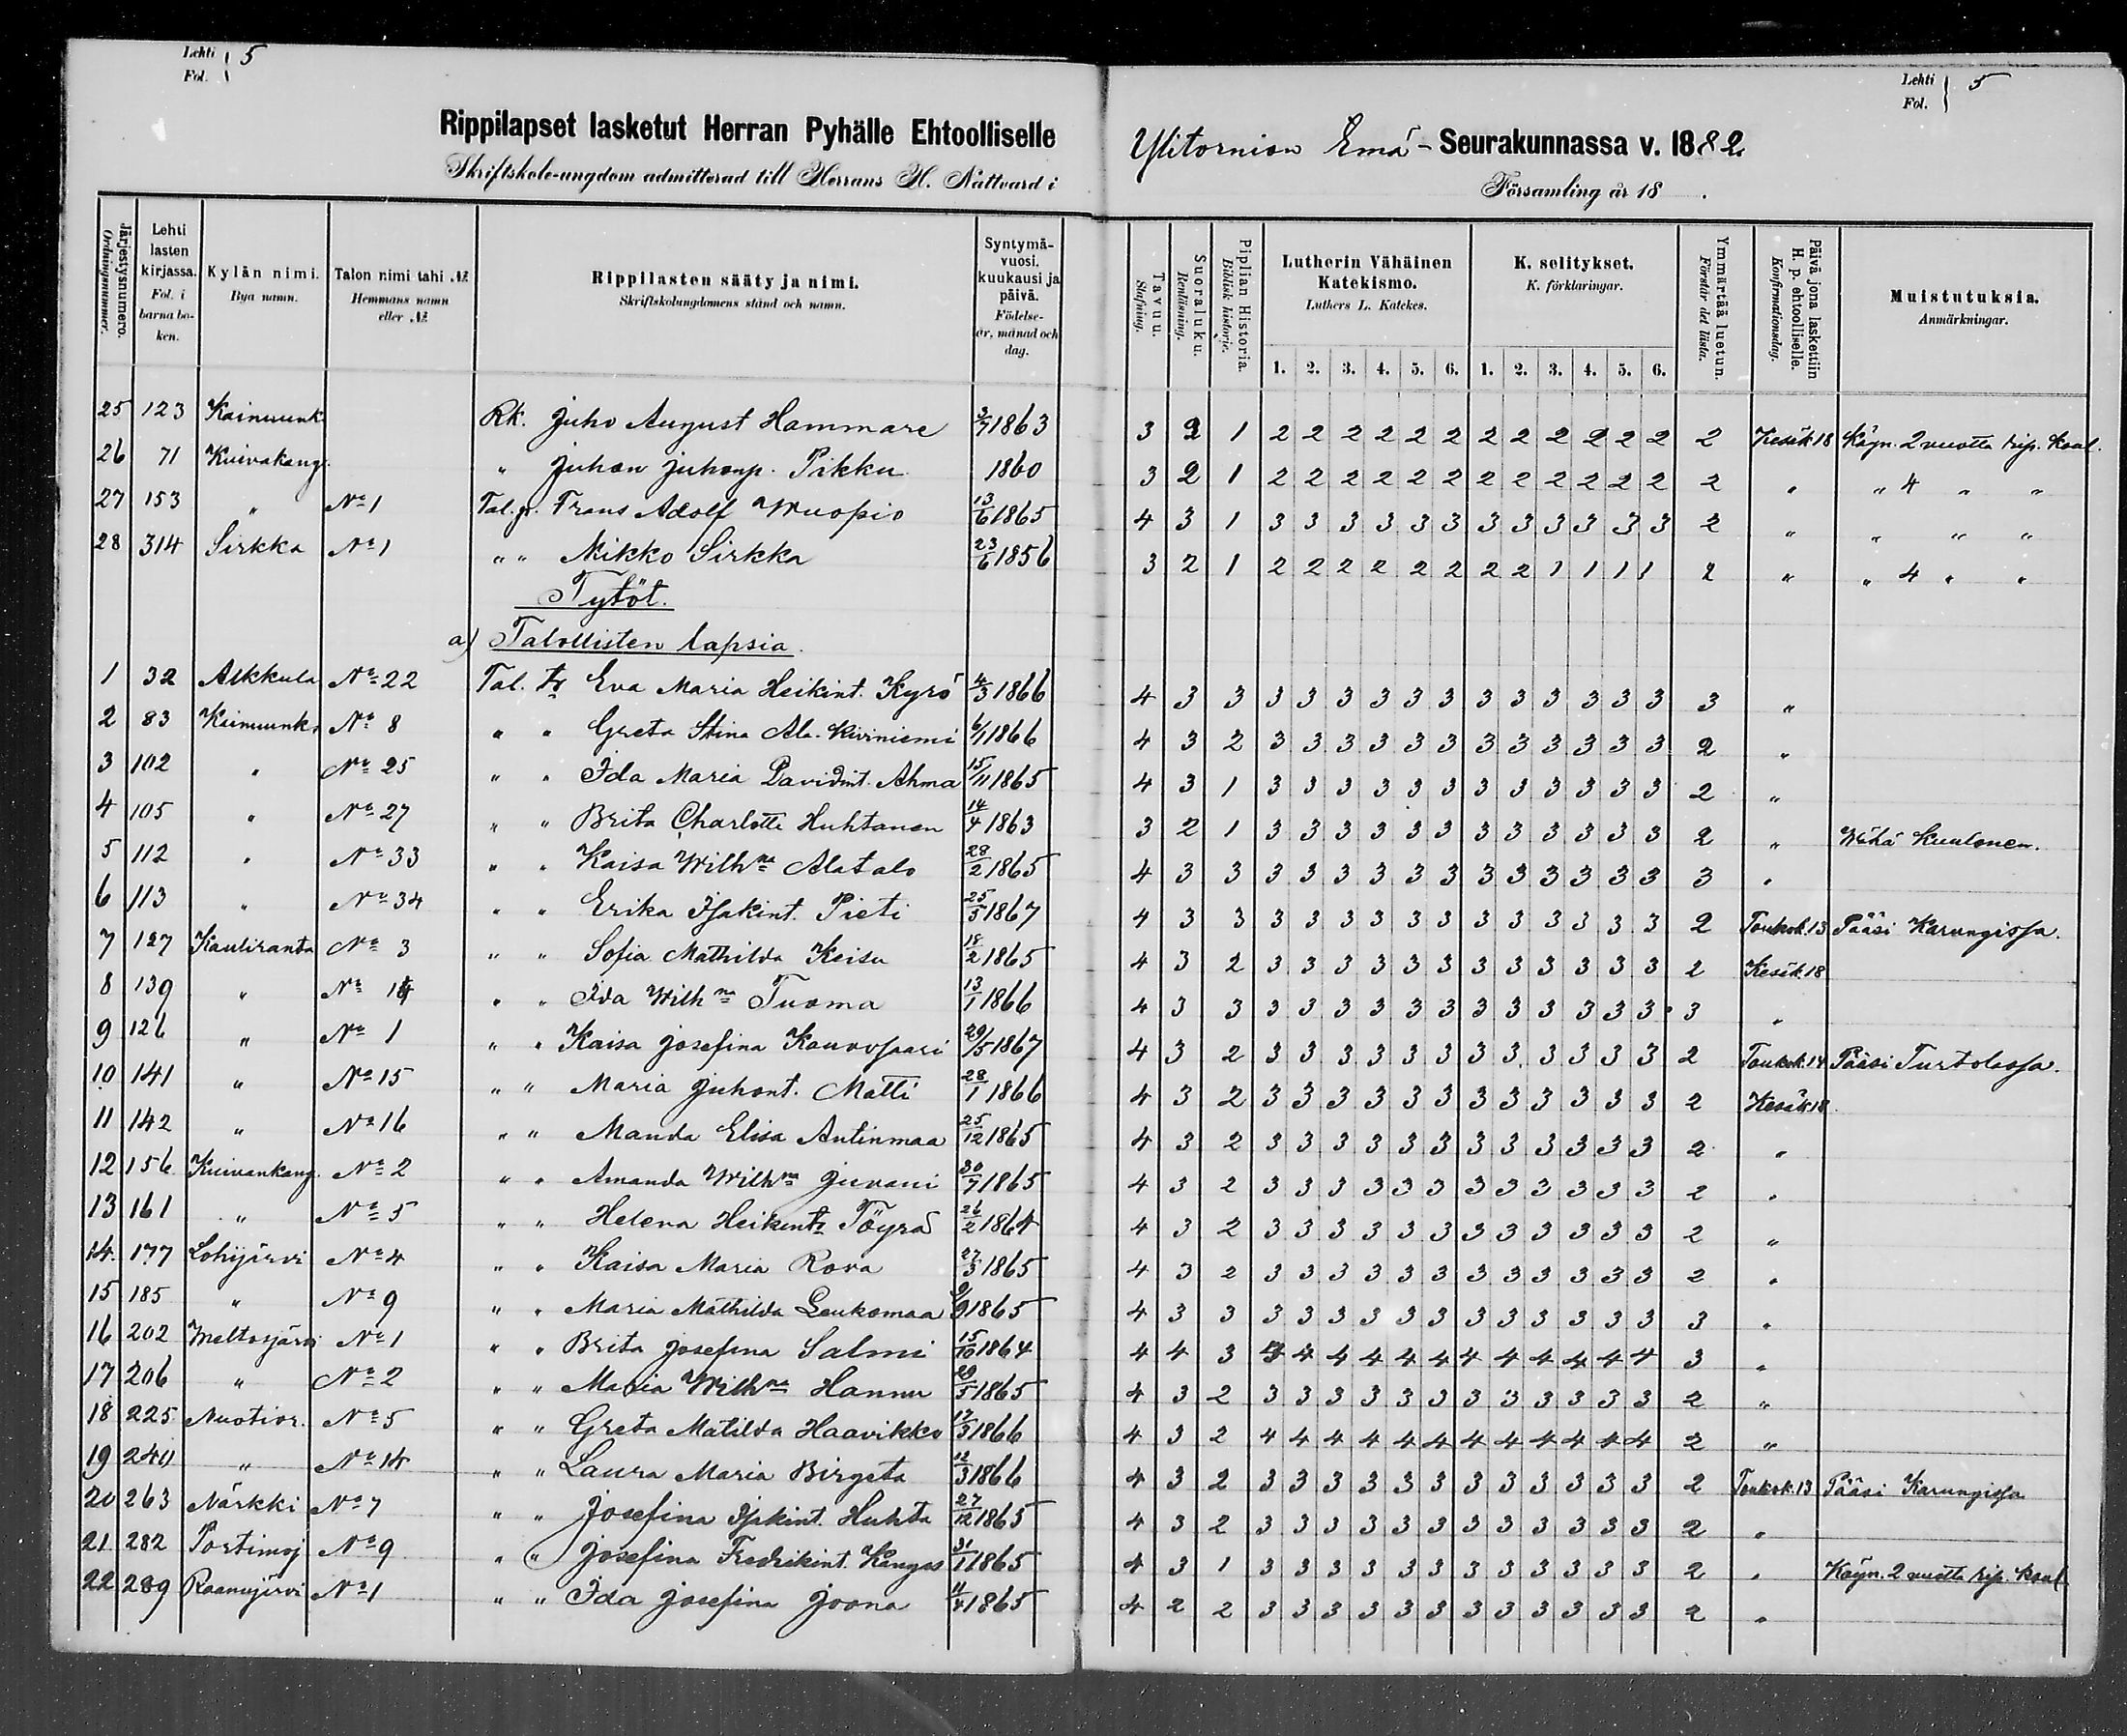 Lehti Fol. 5
Lehti Fol. 5
Rippilapset lasketut Herran Pyhälle Ehtoolliselle Ylitornion Emä-Seurakunnassa v. 1882.
Skriftskole-ungdom admitterad till Herrans H. Nattvard i Församling år 18 .
Järjestysnumero. Ordningsnummer.
Lehti lasten kirjassa. Fol. i barnaboken.
Kylän nimi. Bya namn.
Talon nimi tahi №. Hemmans namn eller №.
Rippilasten sääty ja nimi. Skriftskolungdomens stånd och namn.
Syntymä-vuosi, kuukausi ja päivä. Födelse-år, månad och dag.
Tavuu. Stafning.
Suoraluku. Renläsning.
Piplian Historia. Biblisk historie.
Lutherin Vähäinen Katekismo. Luthers L. Katekes.
1. 2. 3. 4. 5. 6.
K. selitykset. K. förklaringar.
1. 2. 3. 4. 5. 6.
Ymmärtää luetun. Förstår det lästa.
Päivä jona laskettiin H. p. ehtoolliselle. Konfirmationsdag.
Muistutuksia. Anmärkningar.
25 123 Kainuunk. Rk. Juho August Hammare 3/7 1863 3 2 1 2 2 2 2 2 2 2 2 2 2 2 2 2 Kesäk 18 Käyn. 2 vuotta rip. koul.
26 71 Kuivakang. " Juhan Juhonp. Pikku 1860 3 2 1 2 2 2 2 2 2 2 2 2 2 2 2 2 " " 4 " "
27 153 " No 1 Tal. p. Frans Adolf Wuopio 13/6 1865 4 3 1 3 3 3 3 3 3 3 3 3 3 3 3 2 " " " "
28 314 Sirkka No 1 " " Mikko Sirkka 23/6 1856 3 2 1 2 2 2 2 2 2 2 2 1 1 1 1 2 " " 4 " "
Tytöt.
a) Talollisten lapsia.
1 32 Alkkula No 22 Tal. tr Eva Maria Heikint. Kyrö 4/3 1866 4 3 3 3 3 3 3 3 3 3 3 3 3 3 3 3 "
2 83 Kainuunk. No 8 " " Greta Stina Ala-Kiviniemi 6/1 1866 4 3 2 3 3 3 3 3 3 3 3 3 3 3 3 2 "
3 102 " No 25 " " Ida Maria Davidint. Ahma 15/11 1865 4 3 1 3 3 3 3 3 3 3 3 3 3 3 3 2 "
4 105 " No 27 " " Brita Charlotte Huhtanen 14/4 1863 3 2 1 3 3 3 3 3 3 3 3 3 3 3 3 2 " Wähä kuulonen.
5 112 " No 33 " " Kaisa Wilhna Alatalo 28/2 1865 4 3 3 3 3 3 3 3 3 3 3 3 3 3 3 3 "
6 113 " No 34 " " Erika Isakint. Pieti 25/5 1867 4 3 3 3 3 3 3 3 3 3 3 3 3 3 3 2 Toukok. 13 Pääsi Karungissa.
7 127 Kauliranta No 3 " " Sofia Mathilda Keisu 18/2 1865 4 3 2 3 3 3 3 3 3 3 3 3 3 3 3 2 Kesäk 18
8 139 " No " " Ida Wilhna Tuoma 13/1 1866 4 3 3 3 3 3 3 3 3 3 3 3 3 3 3 3 "
9 126 " No 1 " " Kaisa Josefina Kouvosaari 29/5 1867 4 3 2 3 3 3 3 3 3 3 3 3 3 3 3 2 Toukok. 14 Pääsi Turtolassa.
10 141 " No 15 " " Maria Juhont. Matti 28/1 1866 4 3 2 3 3 3 3 3 3 3 3 3 3 3 3 2 Kesäk 18
11 142 " No 16 " " Manda Elisa Antinmaa 25/12 1865 4 3 2 3 3 3 3 3 3 3 3 3 3 3 3 2 "
12 156 Kuivankang. No 2 " " Amanda Wilhna Juvani 30/7 1865 4 3 2 3 3 3 3 3 3 3 3 3 3 3 3 2 "
13 161 " No 5 " " Helena Heikint. Töyrä 26/2 1864 4 3 2 3 3 3 3 3 3 3 3 3 3 3 3 2 "
14. 177 Lohijärvi No 4 " " Kaisa Maria Rova 27/3 1865 4 3 2 3 3 3 3 3 3 3 3 3 3 3 3 2 "
15 185 " No 9 " " Maria Mathilda Leukomaa 9/9 1865 4 3 3 3 3 3 3 3 3 3 3 3 3 3 3 3 "
16 202 Meltosjärvi No 1 " " Brita Josefina Salmi 15/10 1864 4 4 3 4 4 4 4 4 4 4 4 4 4 4 3 "
17 206 " No 2 " " Maria Wilhna Hannu 29/5 1865 4 3 2 3 3 3 3 3 3 3 3 3 3 3 3 2 "
18 225 Nuotior. No 5 " " Greta Matilda Haavikko 17/3 1866 4 3 2 4 4 4 4 4 4 4 4 4 4 4 4 2 "
19 240 " No 14 " " Laura Maria Birgeta 12/3 1866 4 3 2 3 3 3 3 3 3 3 3 3 3 3 3 2 Toukok. 13 Pääsi Karungissa
20 263 Närkki No 7 " " Josefina Isakint. Huhta 27/12 1865 4 3 2 3 3 3 3 3 3 3 3 3 3 3 3 2 "
21. 282 Portimoj No 9 " " Josefina Fredrikint. Kangas 31/1 1865 4 3 1 3 3 3 3 3 3 3 3 3 3 3 3 2 " Käyn. 2 vuotta rip. koul
22 289 Raanujärvi No 1 " " Ida Josefina Joona 11/4 1865 4 2 2 3 3 3 3 3 3 3 3 3 3 3 3 2 "